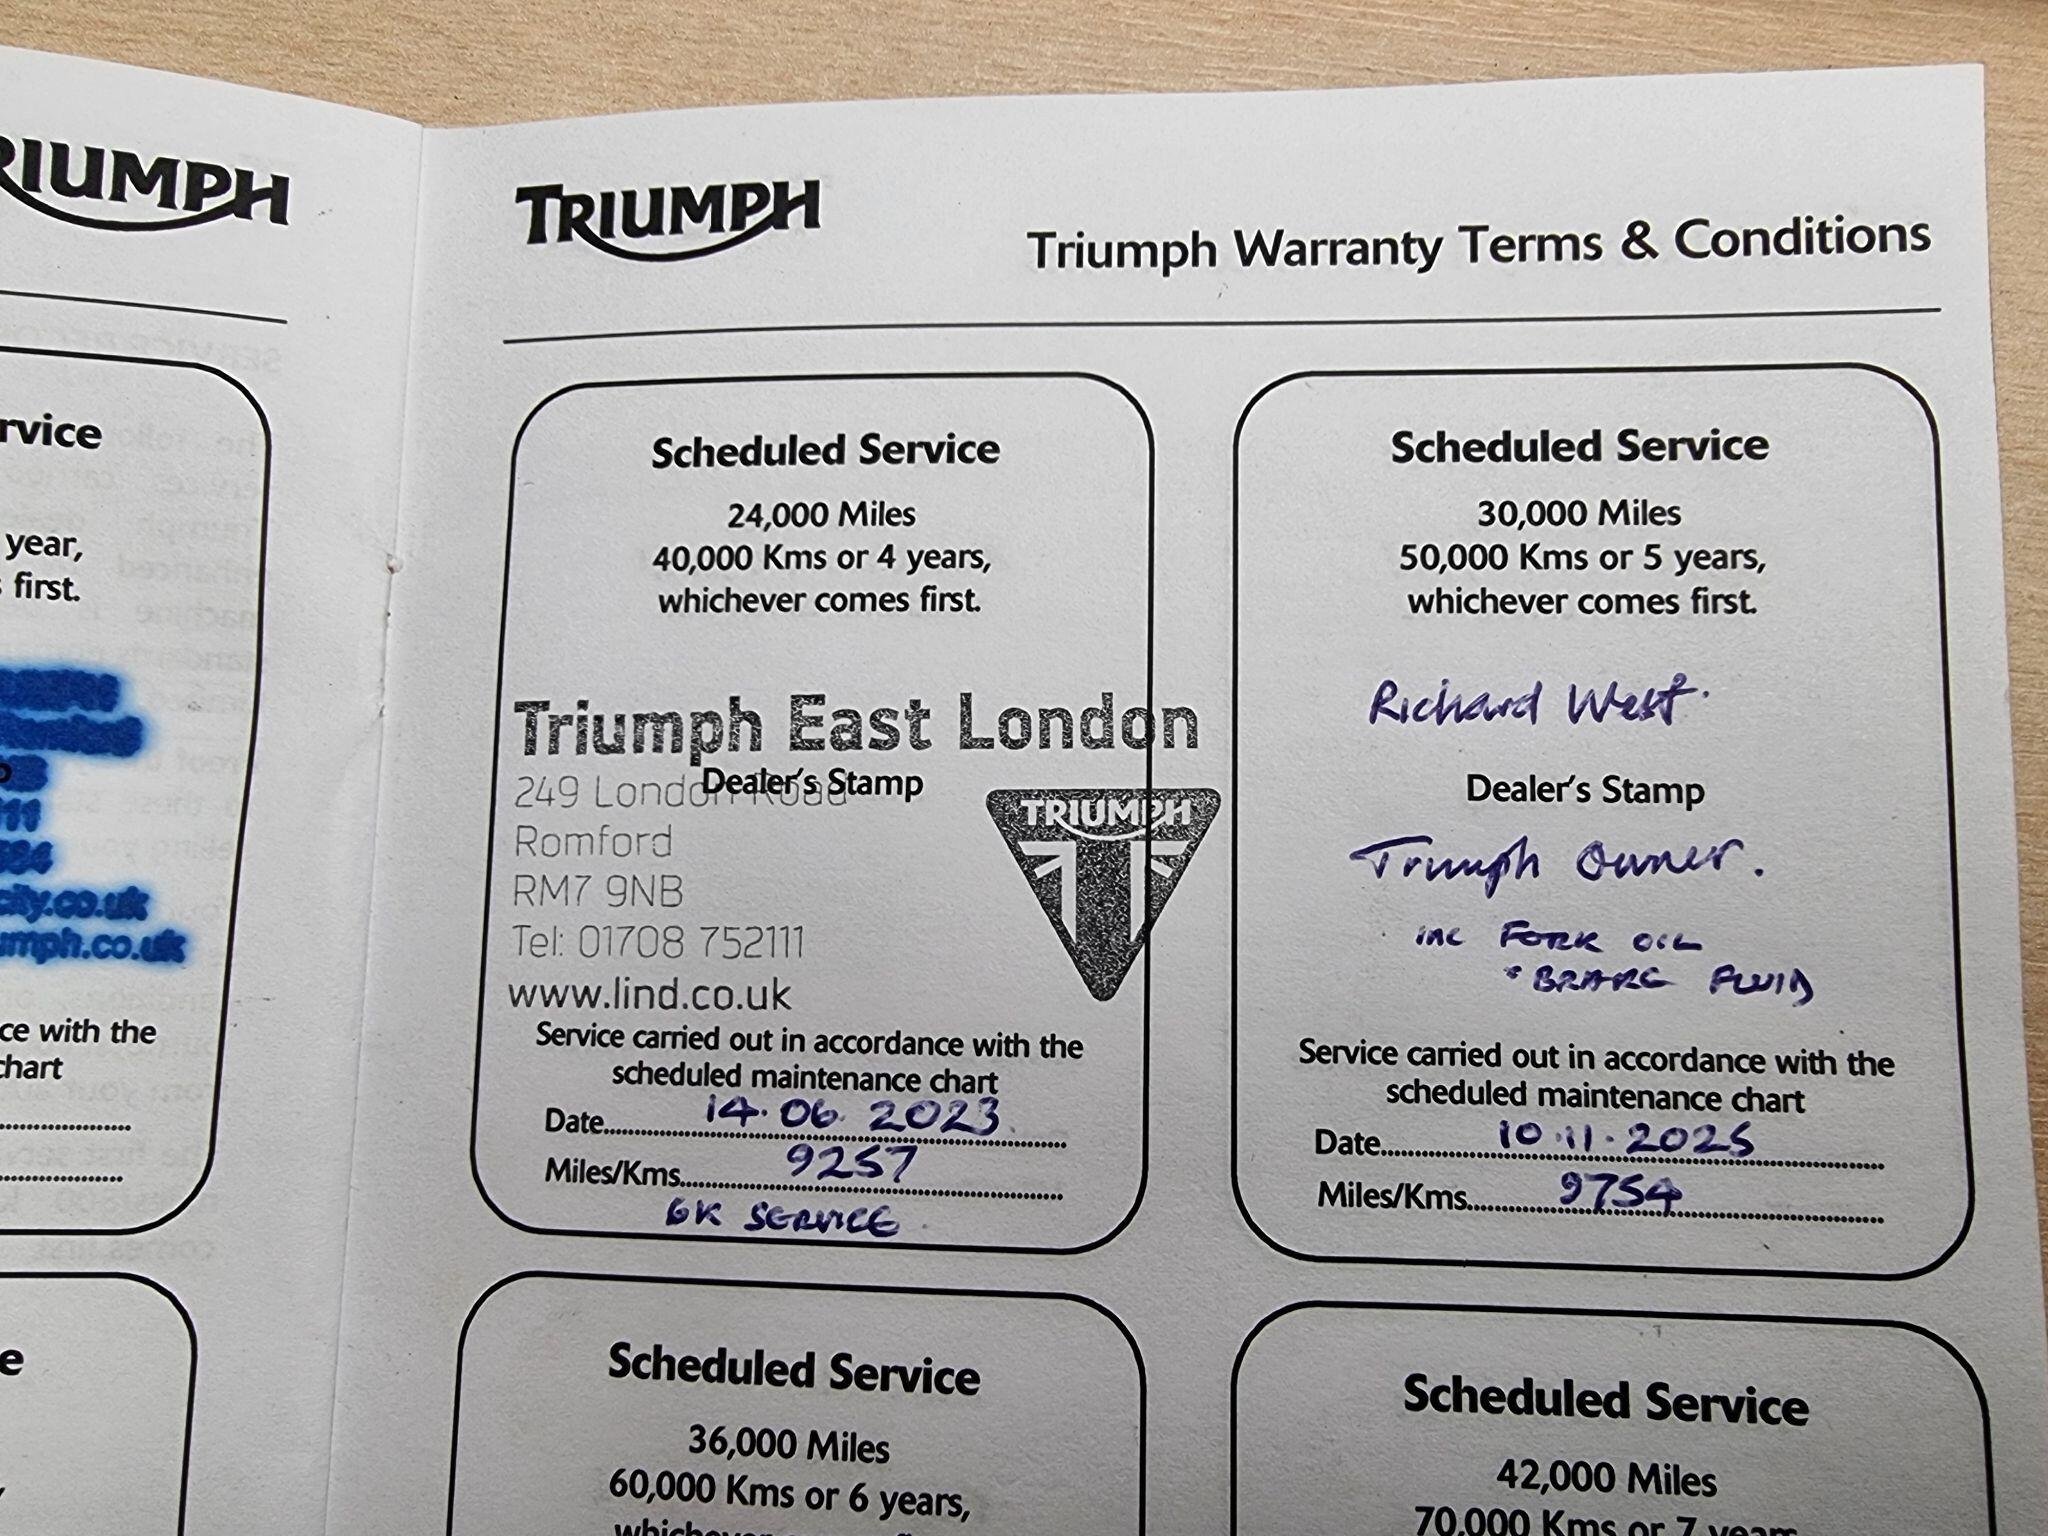 RIUMPH
rvice
year,
first.
city.co.uk
umph.co.uk
ce with the
chart
e
TRIUMPH
Triumph Warranty Terms & Conditions
Scheduled Service
24,000 Miles
40,000 Kms or 4 years,
whichever comes first.
Triumph East London
249 London Road
Dealer's Stamp
Romford
RM7 9NB
Tel: 01708 752111
www.lind.co.uk
TRIUMPH
Service carried out in accordance with the
scheduled maintenance chart
Date 14.06.2023
Miles/Kms 9257
6K SERVICE
Scheduled Service
30,000 Miles
50,000 Kms or 5 years,
whichever comes first.
Richard West.
Dealer's Stamp
Triumph Owner.
inc FORK OIL
+ BRAKE FLUID
Service carried out in accordance with the
scheduled maintenance chart
Date 10.11.2025
Miles/Kms 9754
Scheduled Service
36,000 Miles
60,000 Kms or 6 years,
Scheduled Service
42,000 Miles
70,000 Kms or 7 years